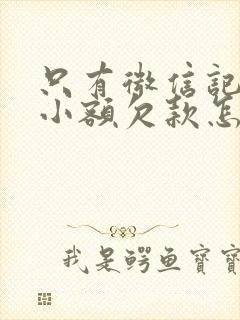 只有微信記
小額欠款怎
我是鳄鱼寶寶